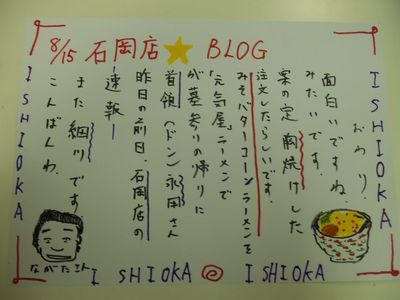 8/15 石岡店 BLOG
こんばんわ。
また細川です
速報ー
昨日の前日、石岡店の
首領(ドン)永田さん
が墓参りの帰りに
「元気屋」ラーメンで
みそバターコーンラーメンを
注文したらしいです。
案の定 胸焼けした
みたいです。
面白いですね
おわり。
ISHIOKA
ISHIOKA
ながたさん
ISHIOKA
ISHIOKA